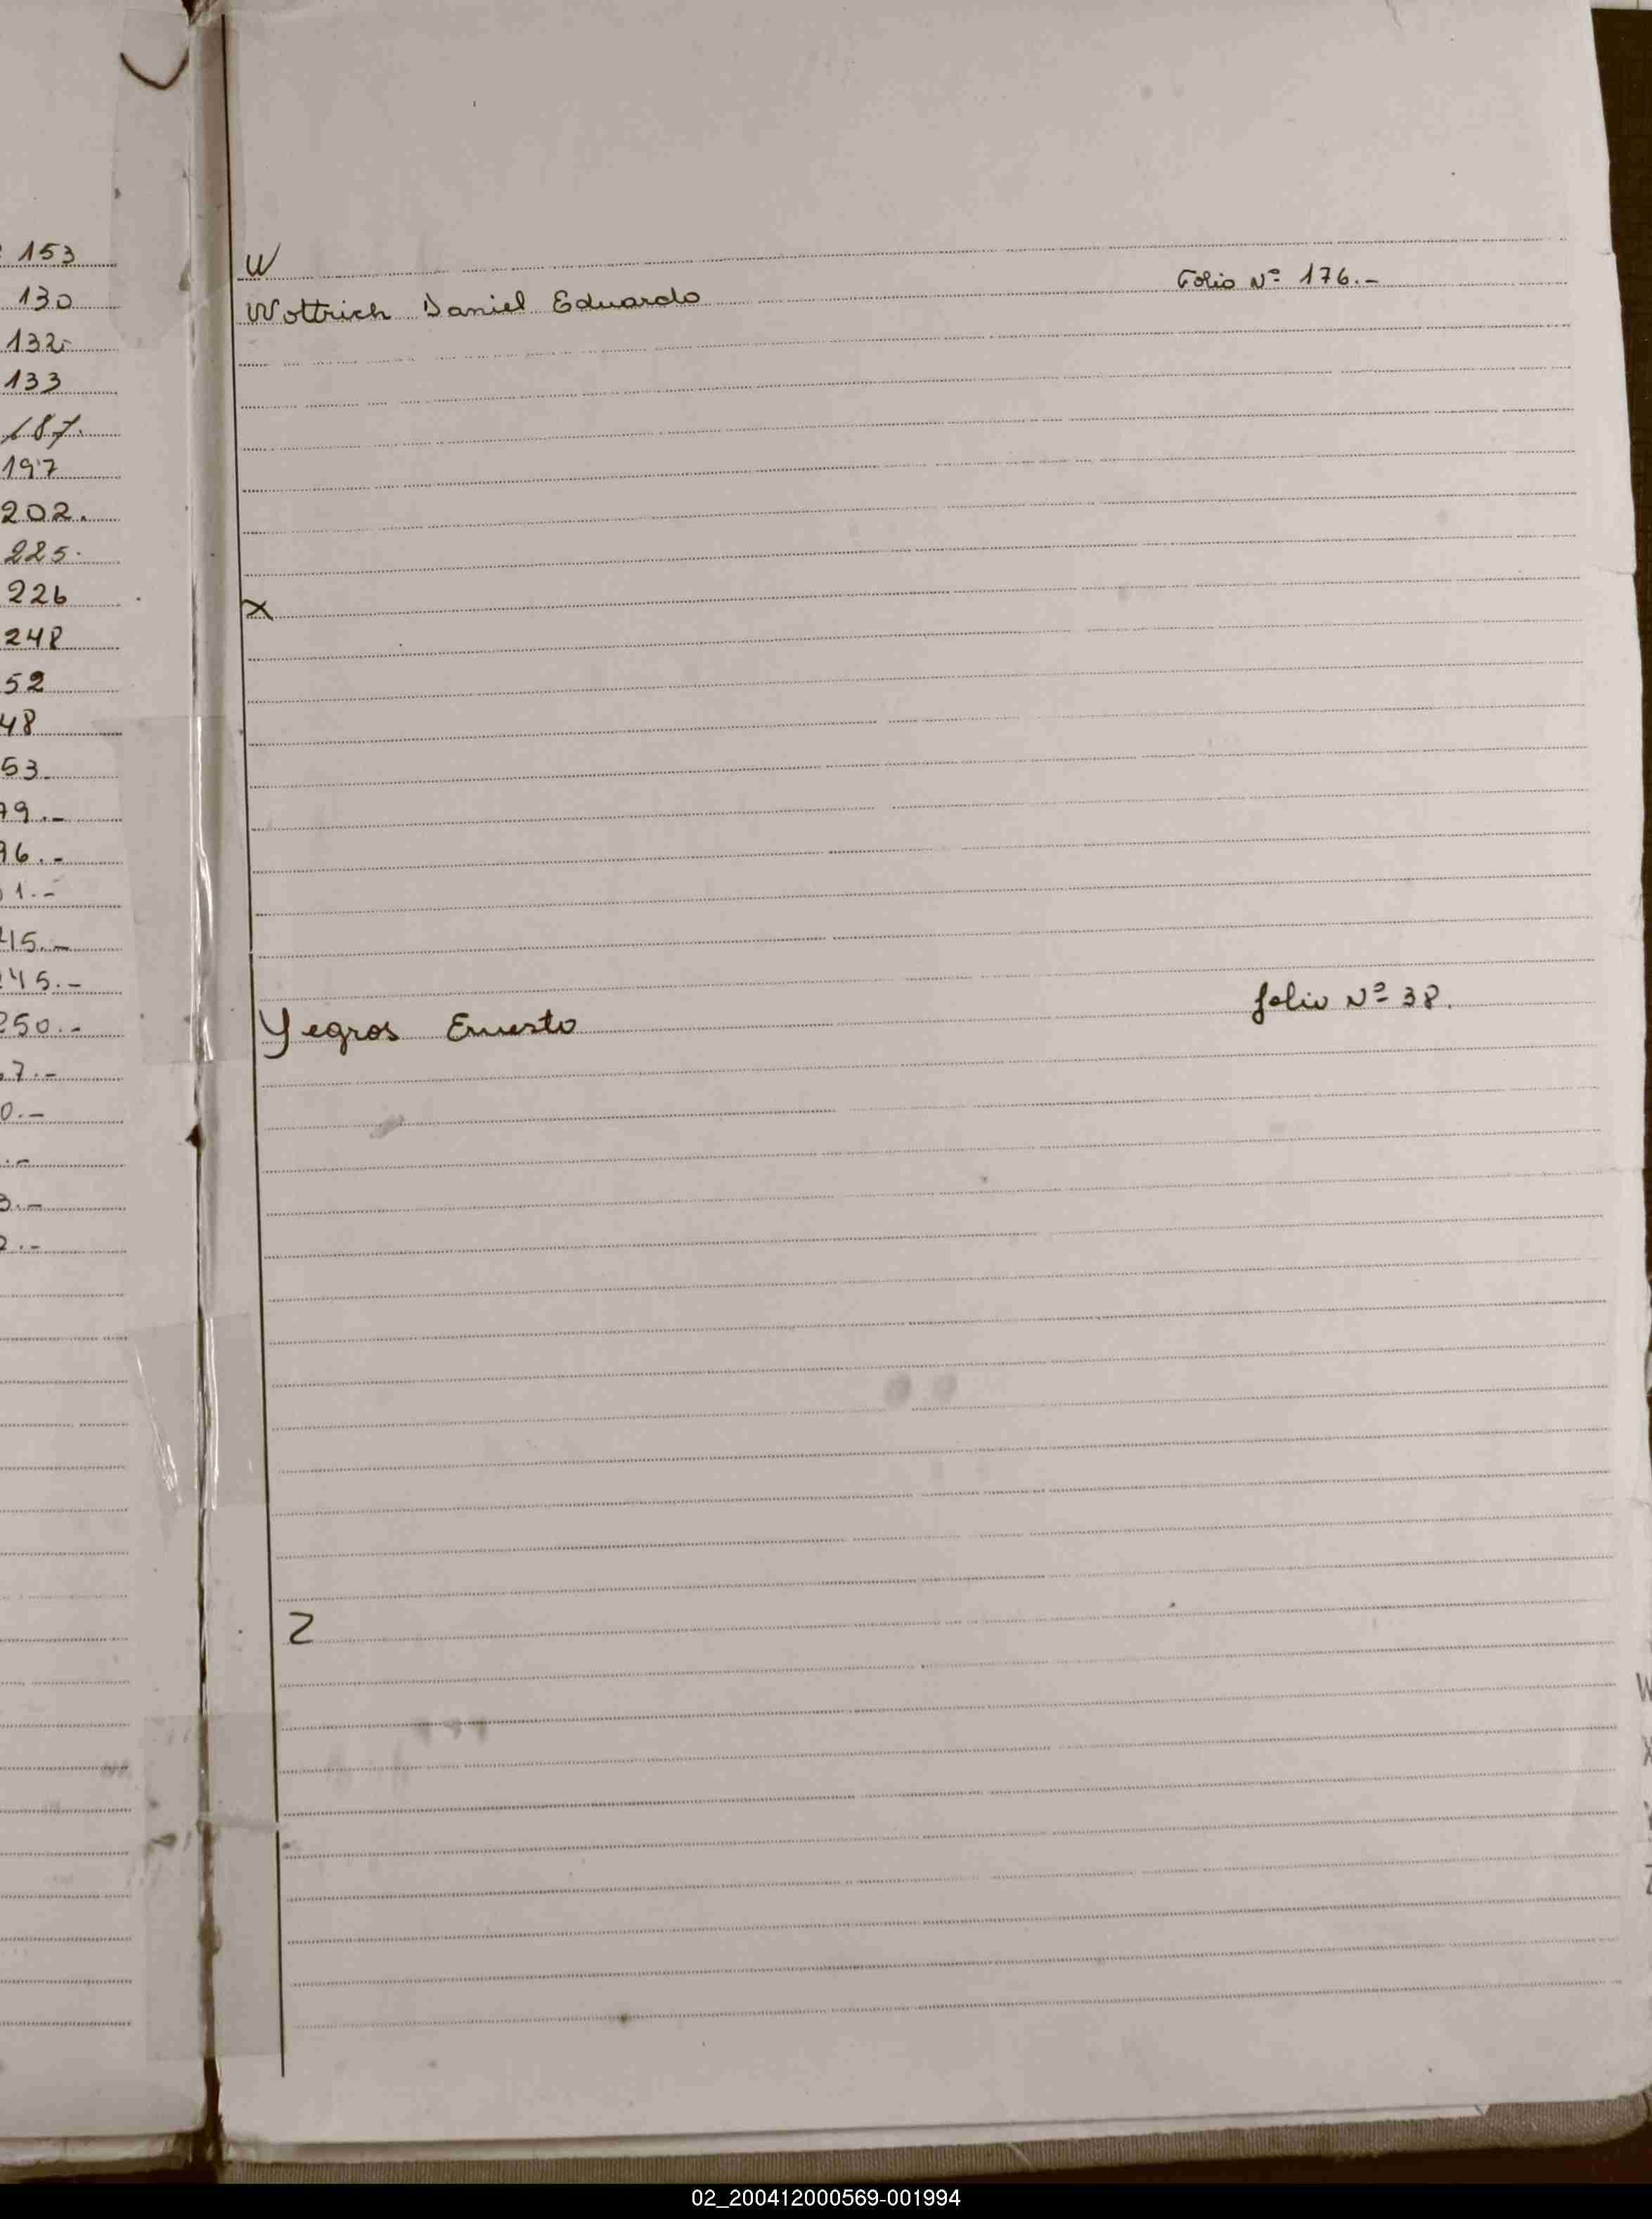 153
130
132
133
187.
197
202.
225.
226
248
52
48
53.
79.-
96.-
1.-
215.-
245.-
250.-
7.-
0.-
.-
3.-
2.-
W
Wottrich Daniel Eduardo Folio Nº 176.-
X
Yegros Ernesto folio Nº 38.
Z
W
X
Z
02_200412000569-001994